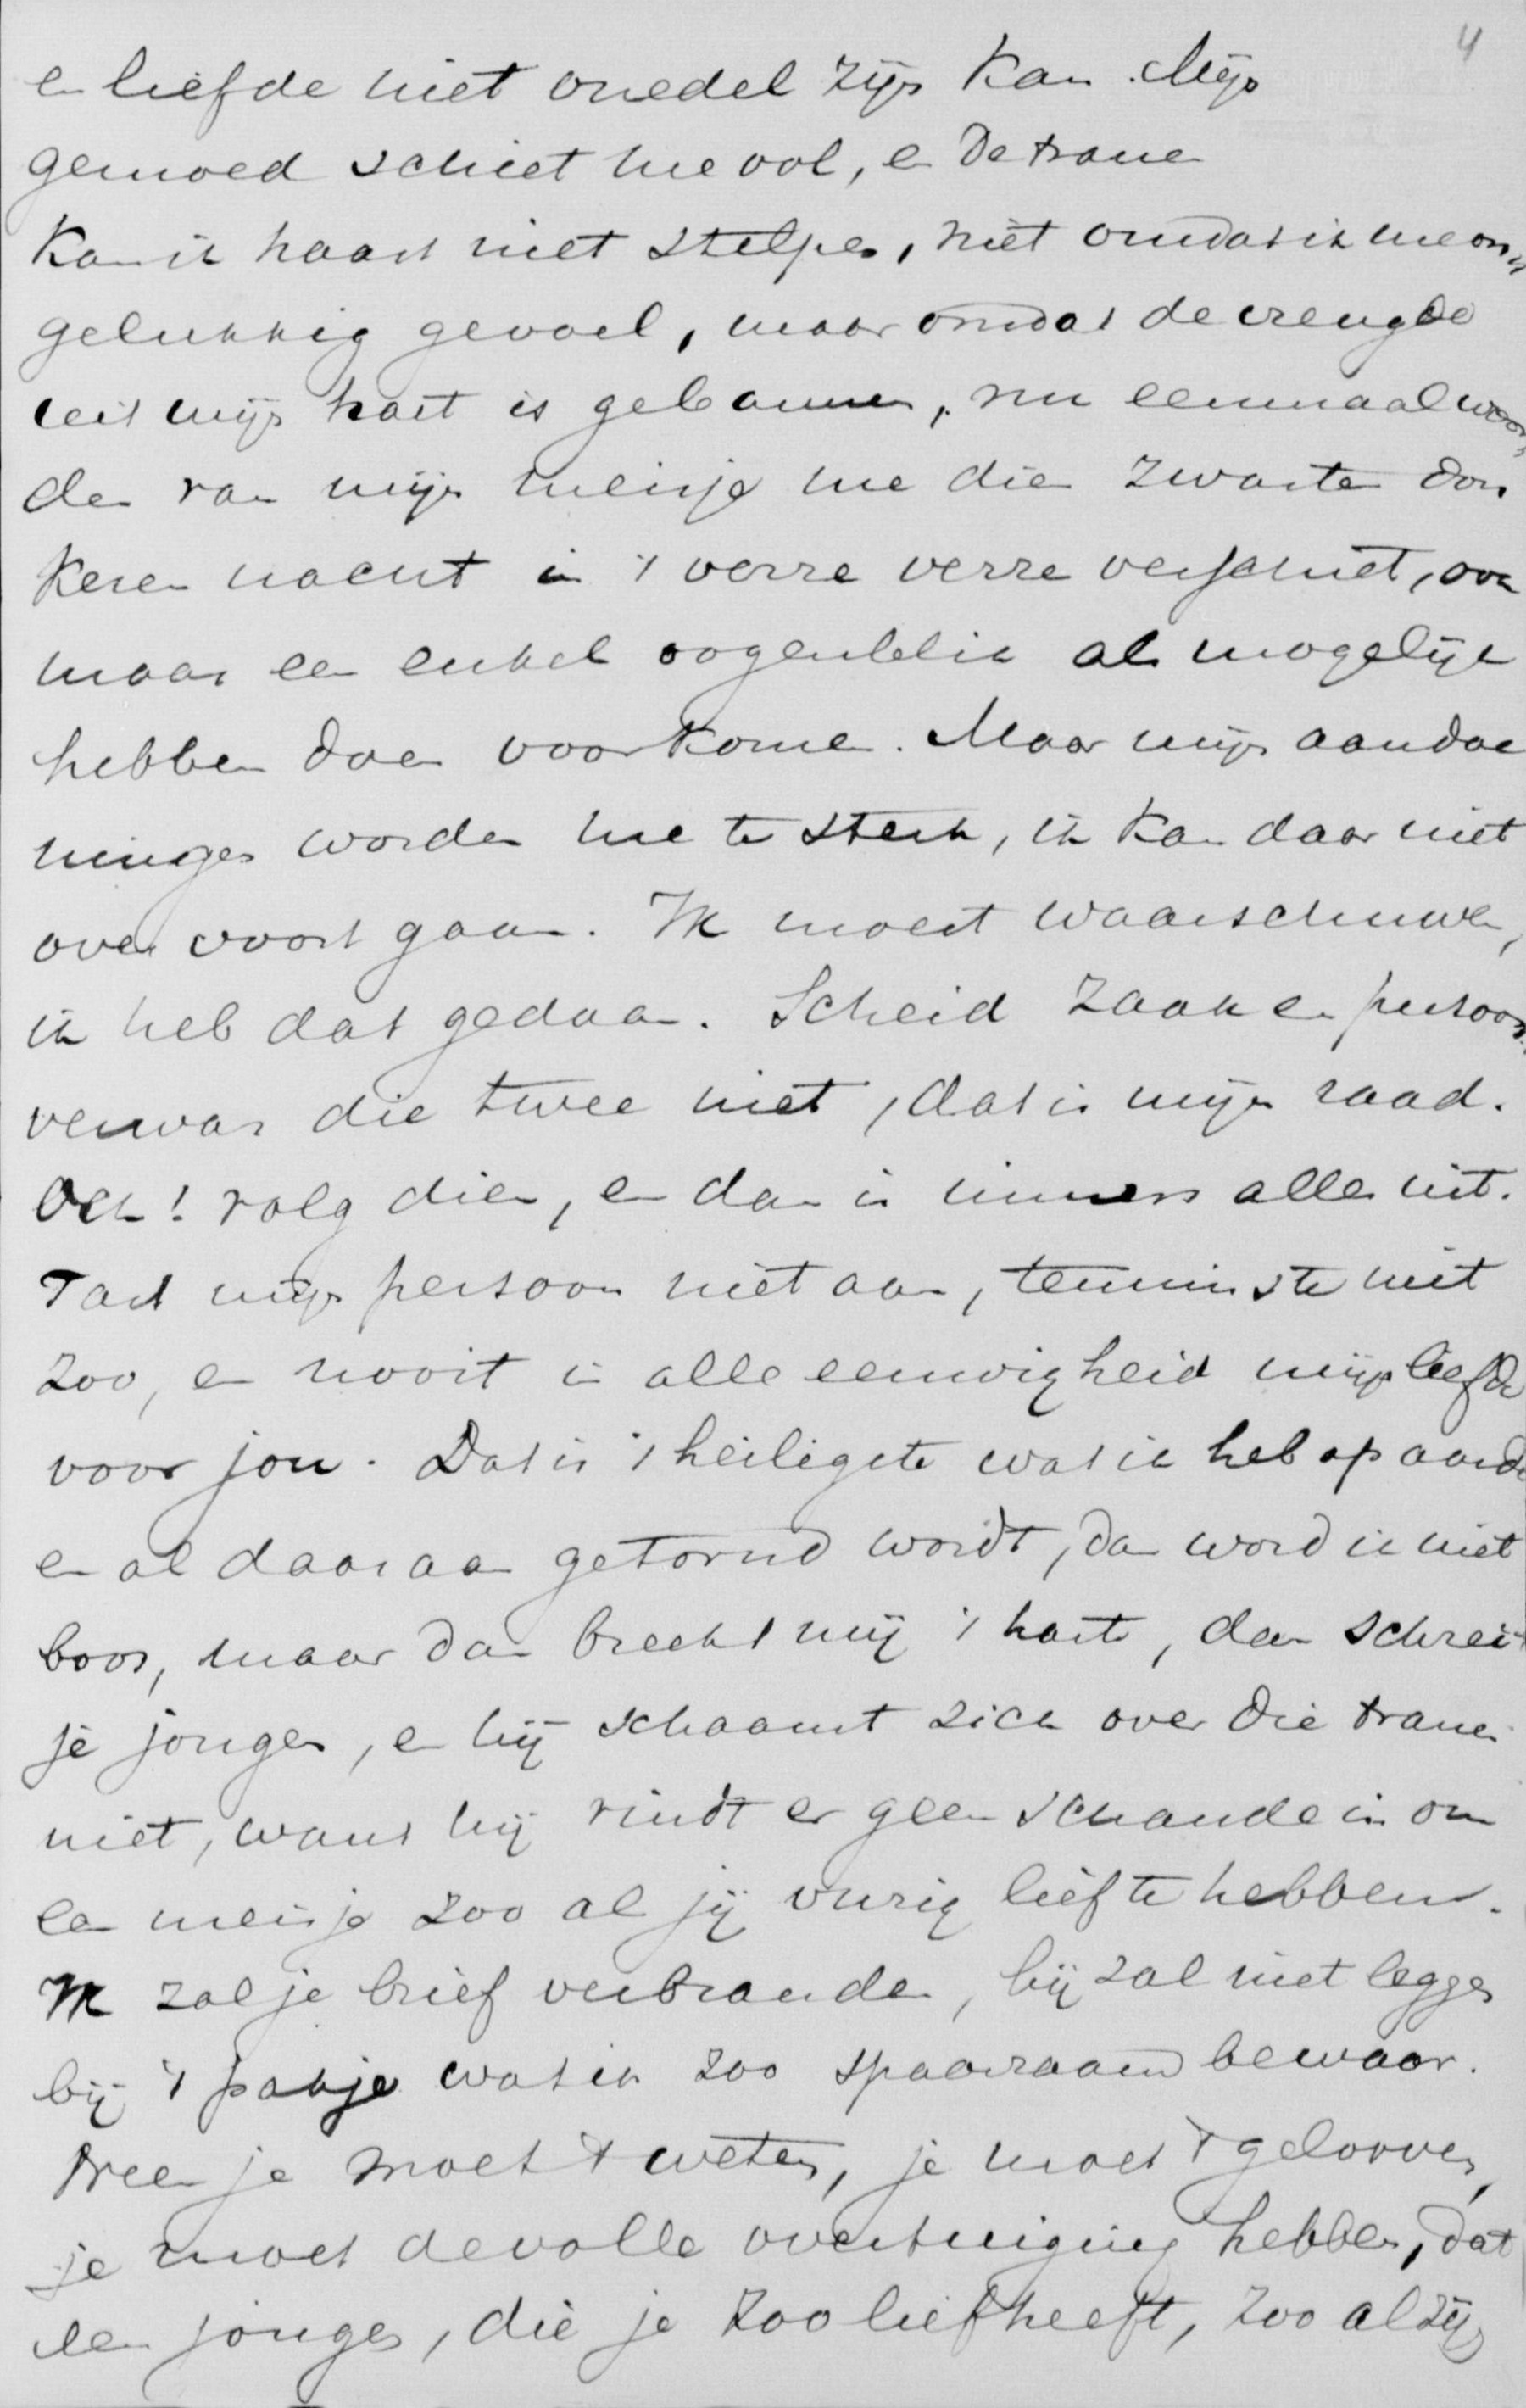 4
en liefde niet onedel zijn kan. Mijn
gemoed schiet me vol, en de tranen
kan ik haast niet stelpen, niet omdat ik me on„
gelukkig gevoel, maar omdat de vreugde
uit mijn hart is gebannen, nu eenmaal woor„
den van mijn meisje me dien zwarten don
keren nacht in 't verre verre verschiet, ook
maar een enkel oogenblik als mogelijk
hebben doen voorkomen. Maar mijn aandoe
ningen worden me te sterk, ik kan daar niet
over voort gaan. Ik moest waarschuwen,
ik heb dat gedaan. Scheid zaak en persoon,
verwar die twee niet, dat is mijn raad.
Och! volg dien, en dan is immers alles uit.
Tast mijn persoon niet aan, tenminste niet
zoo, en nooit in alle eeuwigheid mijn liefde
voor jou. Dat is 't heiligste wat ik heb op aarde
en als daaraan getornd wordt, dan word ik niet
boos, maar dan breekt mij 't harte, dan schreit
je jongen, en hij schaamt zich over die tranen
niet, want hij vindt er geen schande in om
een meisje zoo als jij vurig lief te hebben.
Ik zal je brief verbranden, hij zal niet leggen
bij 't pakje wat ik zoo spaarzaam bewaar.
Neen je moet 't weten, je moet 't gelooven,
je moet de volle overtuiging hebben, dat
een jongen, die je zoo liefheeft, zoo als zijn